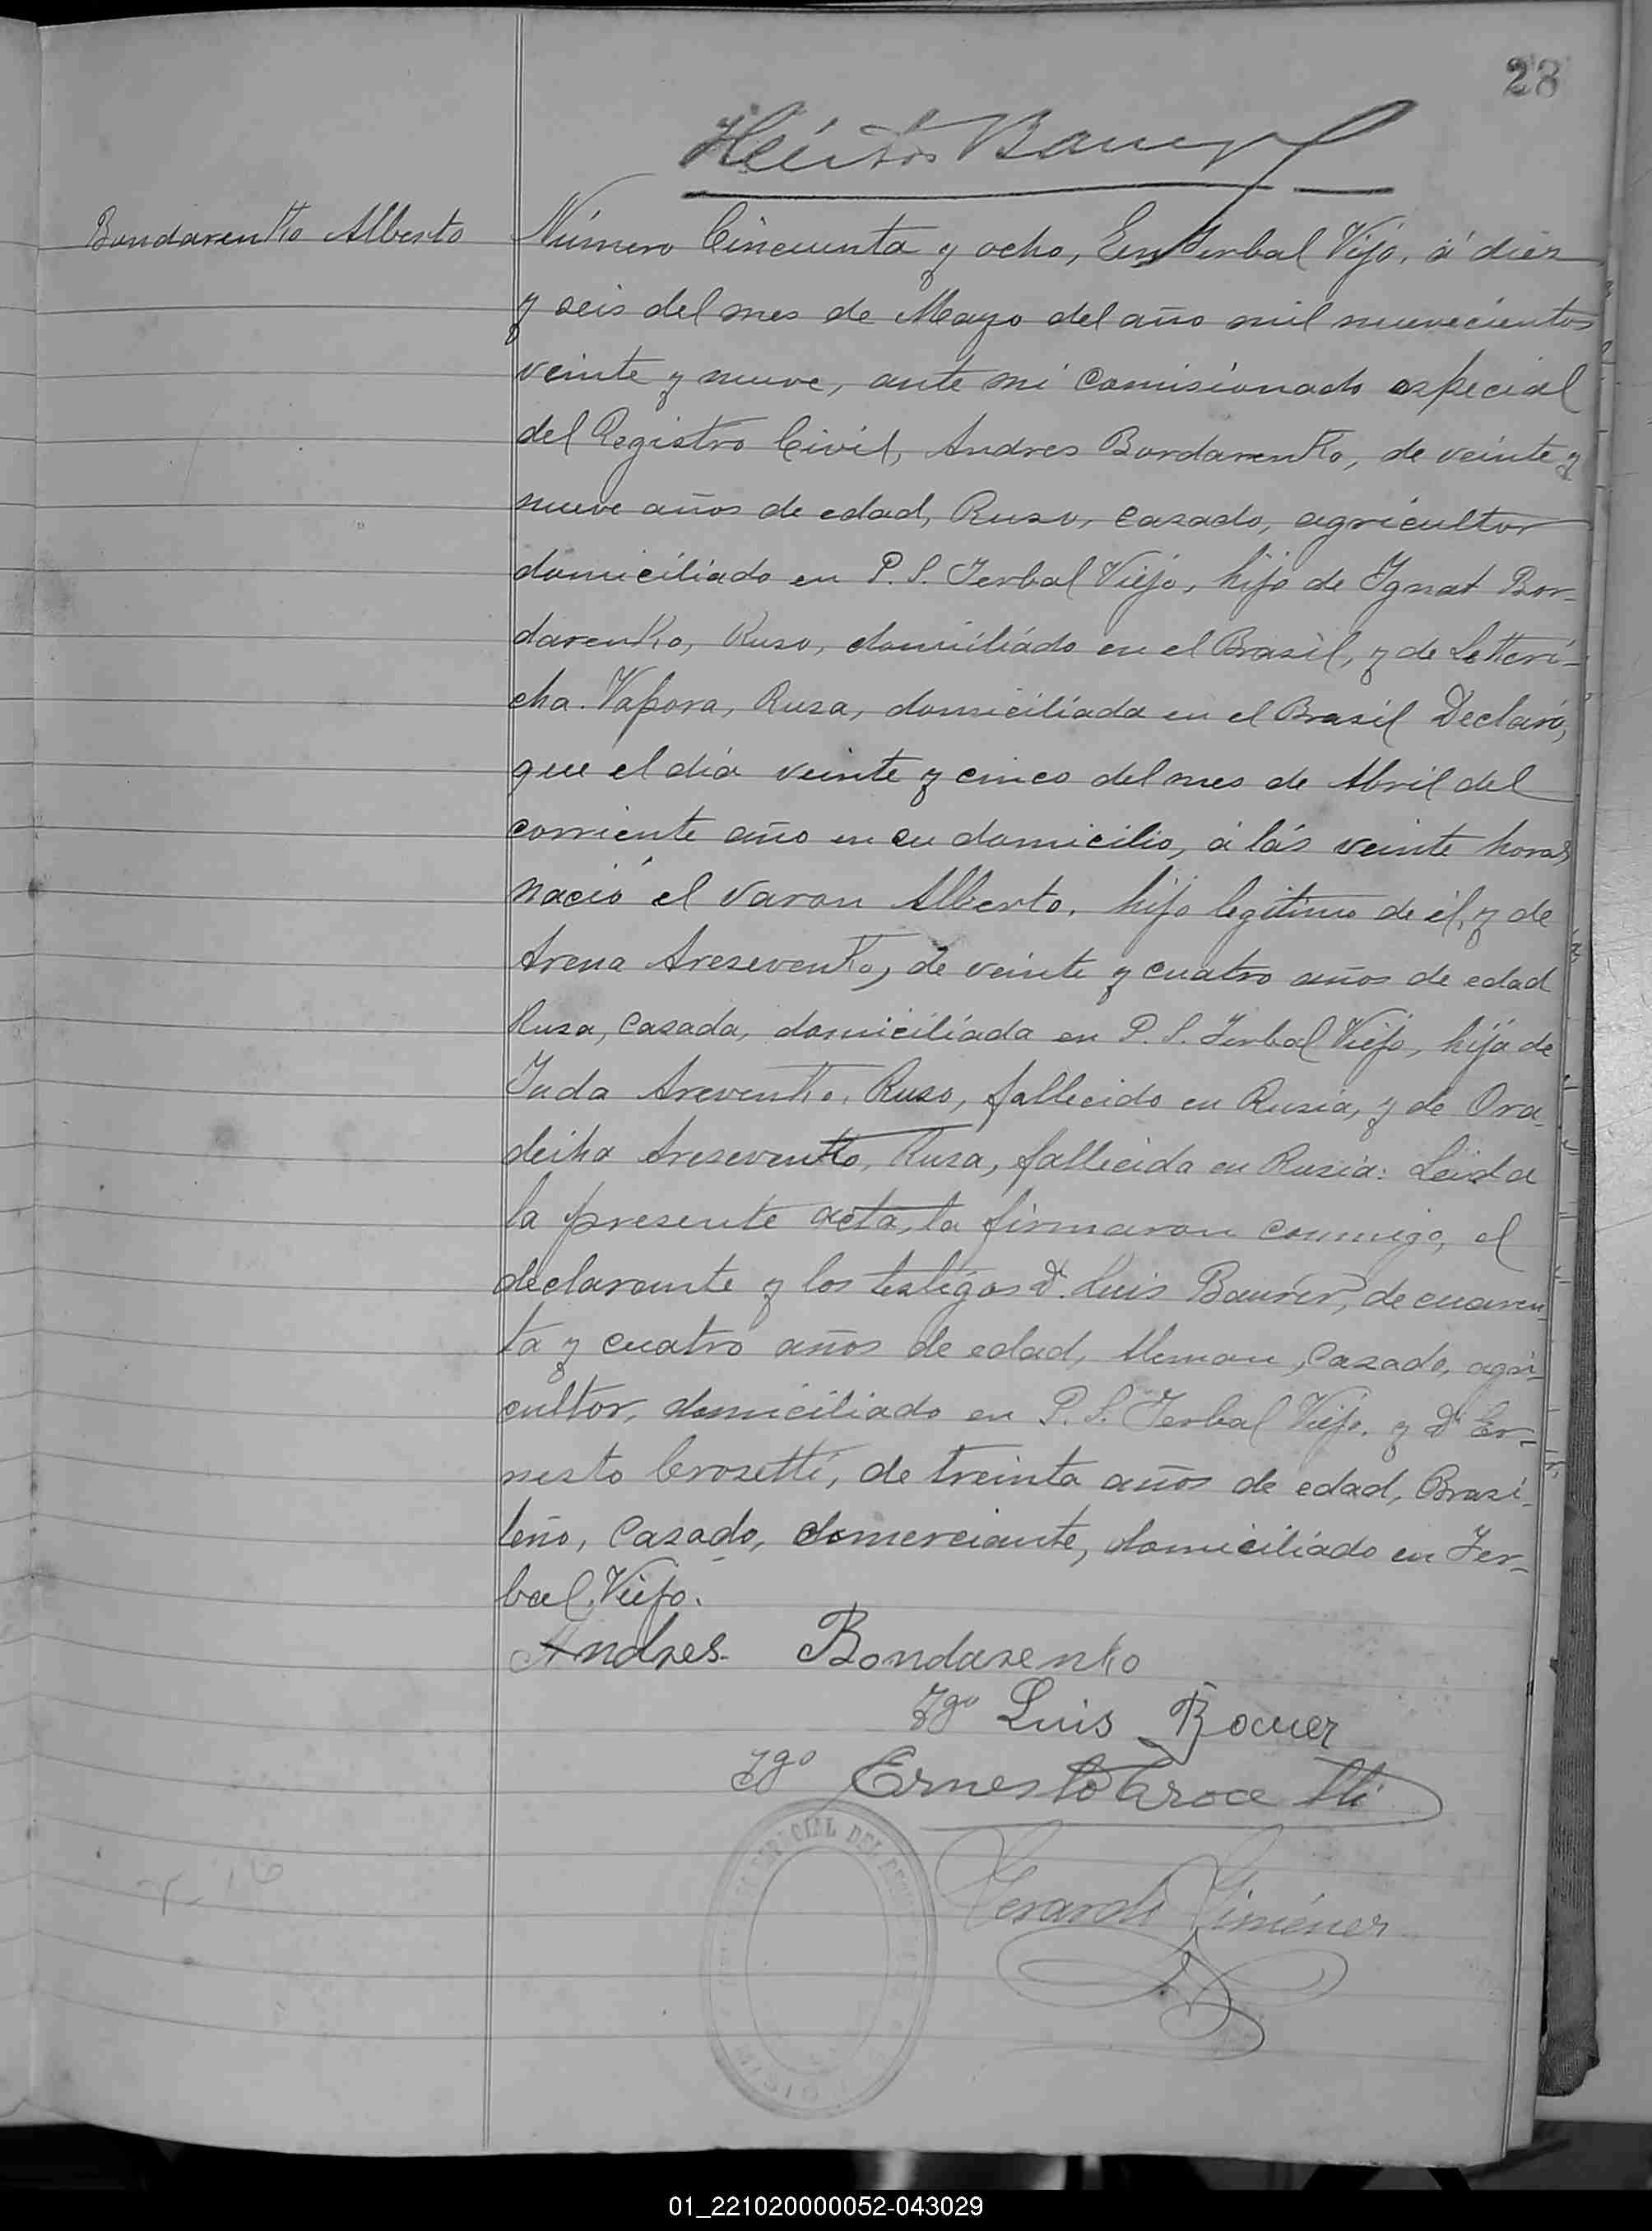 28
Bondarenko Alberto
Número Cincuenta y ocho, En Yerbal Viejo, á diez
y seis del mes de Mayo del año mil nuevecientos
veinte y nueve, ante mi comisionado especial
del Registro Civil, Andres Bordarenko, de veinte y
nueve años de edad, Ruso, casado, agricultor
domiciliado en P. S. Yerbal Viejo, hijo de Ygnat Bor-
darenko, Ruso, domiciliado en el Brasil, y de
cha Vapora, Rusa, domiciliada en el Brasil Declaró,
que el día veinte y cinco del mes de Abril del
corriente año en su domicilio, á lás veinte horas
nació el varon Alberto, hijo legitimo de él, y de
Arena Aresevenko, de veinte y cuatro años de edad
Rusa, casada, domiciliada en P. S. Yerbal Viejo, hija de
Juda Arevenko, Ruso, fallecido en Rusia, y de Ora-
deiha Aresevenko, Rusa, fallecida en Rusia: Leida
la presente acta, la firmaron conmigo, el
declarante y los testigos D. Luis Baurer, de cuaren-
ta y cuatro años de edad, Aleman, casado, agri-
cultor, domiciliado en P. S. Yerbal Viejo, y Dn Er-
nesto Crosetti, de treinta años de edad, Brasi-
leño, casado, comerciante, domiciliado en Yer-
bal Viejo.
Andres Bondarenko
Tgo Luis Bocuer
Tgo Ernesto Croce tti
Gerardo Giménez
01_221020000052-043029